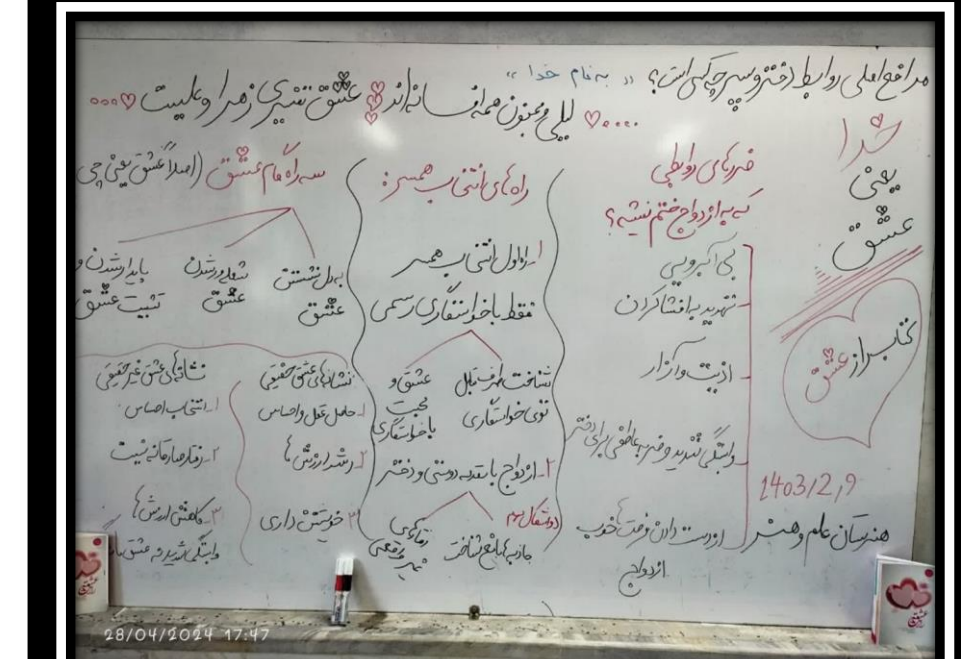 مدافع اصلی روابط دختر و پسر چه کسی است؟ « به نام خدا »
.... لیلی و مجنون همه افسانه اند عشق تفسیری ز زهرا و علیست ...
خدا
یعنی
عشق
کتاب راز عشق
1403/2/9
هنرستان علم و هنر
ضررهای روابطی
که به ازدواج ختم نشه؟
بی آبرویی
تهدید به افشا کردن
اذیت و آزار
وابستگی شدید و ضربه عاطفی برای دختر
از دست دادن فرصت های خوب
ازدواج
راه های انتخاب همسر:
1_ راه اول انتخاب همسر
فقط با خواستگاری رسمی
شناخت طرف مقابل
توی خواستگاری
عشق و
محبت
با خواستگاری
2_ ازدواج با مقدمه دوستی و دختر
دو اشکال مهم
جاذبه ها مانع شناخت
رفتارهای
غیر واقعی
سه راه گام عشق (اصلا عشق یعنی چی
به دل نشستن
عشق
شعله ور شدن
عشق
پایدار شدن و
تثبیت عشق
نشانه های عشق حقیقی
1_ حاصل عقل و احساس
2_ رشد ارزش ها
3_ خویشتن داری
نشانه های عشق غیر حقیقی
1_ انتخاب احساس
2_ رفتار صادقانه نیست
3_ کاهش ارزش ها
وابستگی شدید نه عشق
28/04/2024 17:47